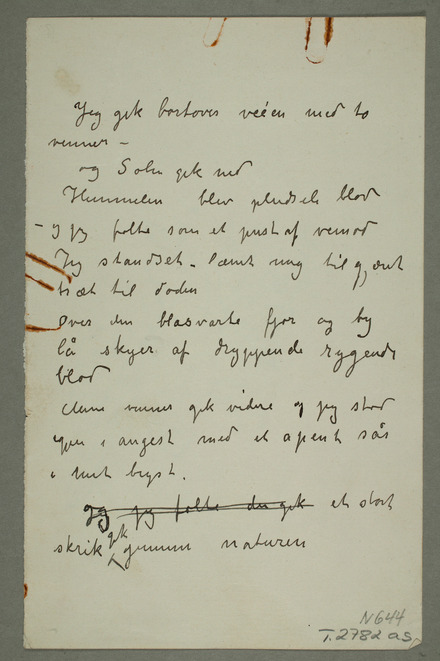 Jeg gik bortover veien med to
venner –
og Solen gik ned
Himmelen blev pludseli blod
– og jeg følte som et pust af vemod
Jeg standset – lænt mig til gjæret
træt til døden
Over den blåsvarte fjor og by
lå skyer af dryppende rygende
blod
Mine venner gik videre og jeg stod
igjen i angest med et åpent sår
i mit bryst.
og jeg følte der gik et stort
skrik gik gjennem naturen
N644
T.2782 as